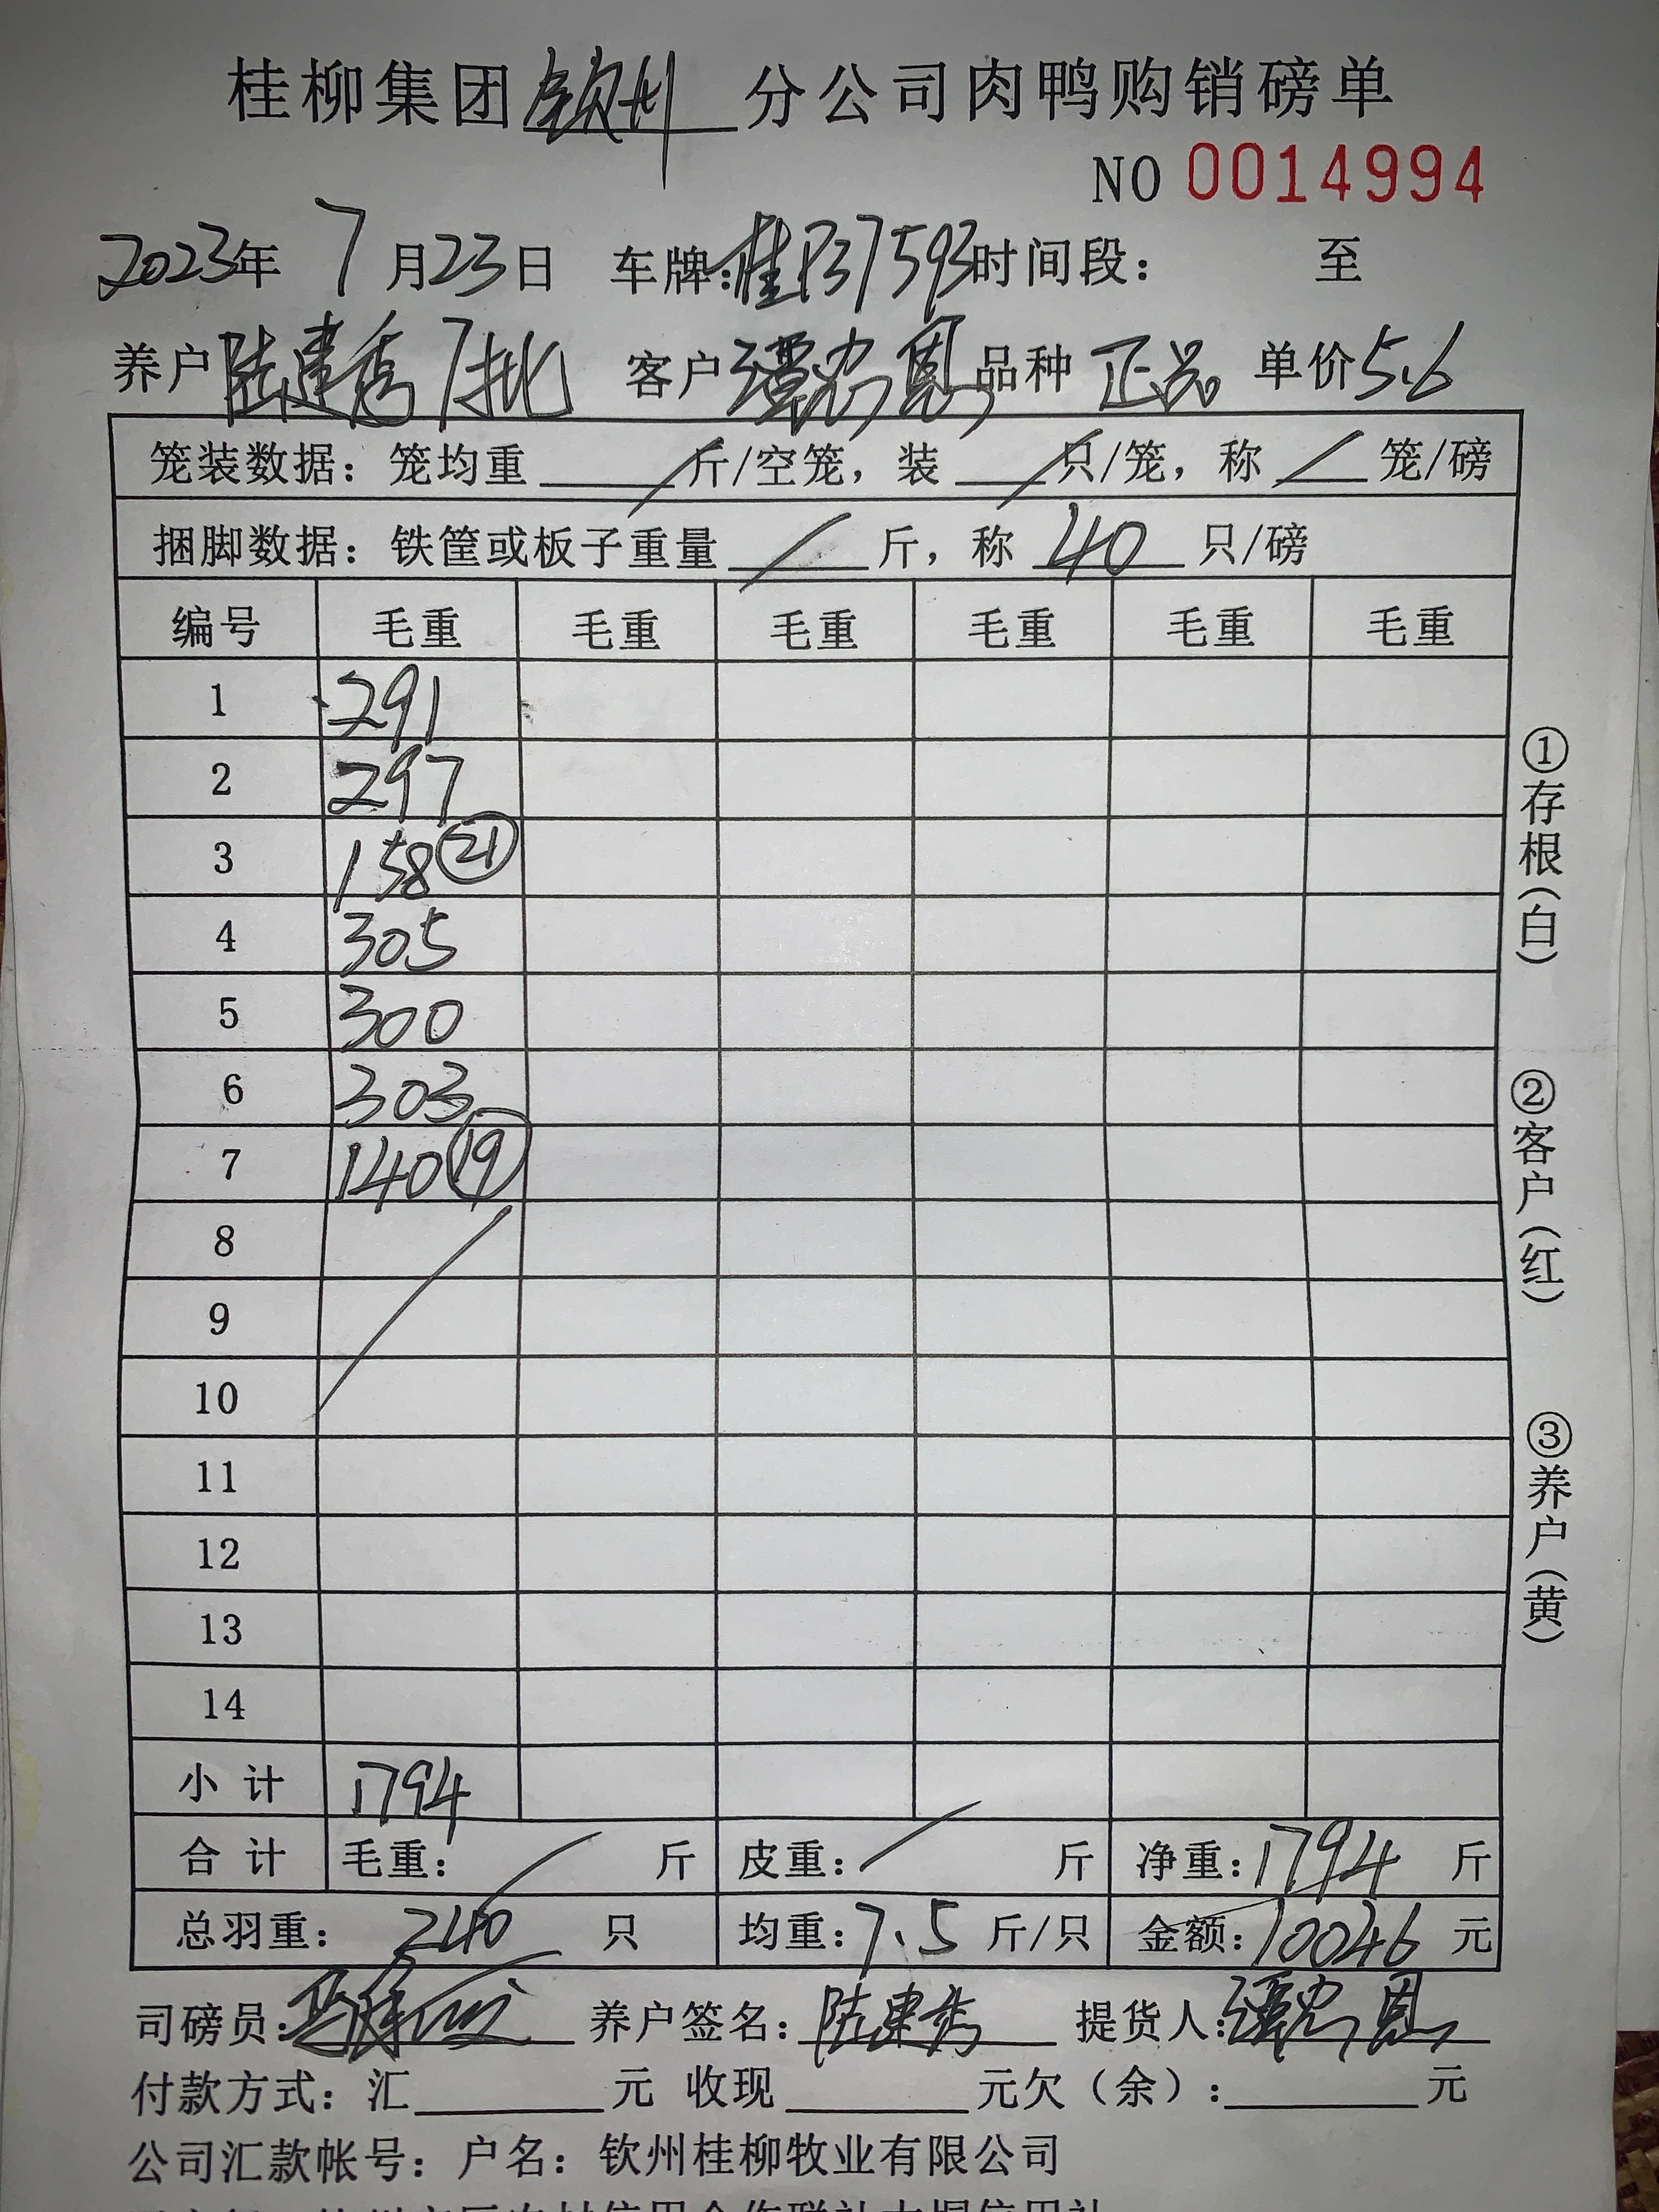 桂柳集团钦州分公司肉鸭购销磅单
NO 0014994
2023年7月23日 车牌:桂P37593时间段: 至
养户陆建秀7批 客户谭忠恩品种正品 单价5.6
笼装数据:笼均重 / 斤/空笼,装 / 只/笼,称 / 笼/磅
捆脚数据:铁筐或板子重量 / 斤,称 40 只/磅
编号 毛重 毛重 毛重 毛重 毛重 毛重
1 291
2 297
3 158 ㉑
4 305
5 300
6 303
7 140 ⑲
8
9
10
11
12
13
14
小计 1794
合计 毛重: / 斤 皮重: / 斤 净重:1794 斤
总羽重: 240 只 均重:7.5 斤/只 金额:10046 元
司磅员: 养户签名:陆建秀 提货人:谭忠恩
付款方式:汇 元 收现 元欠(余): 元
公司汇款帐号:户名:钦州桂柳牧业有限公司
①存根(白)
②客户(红)
③养户(黄)